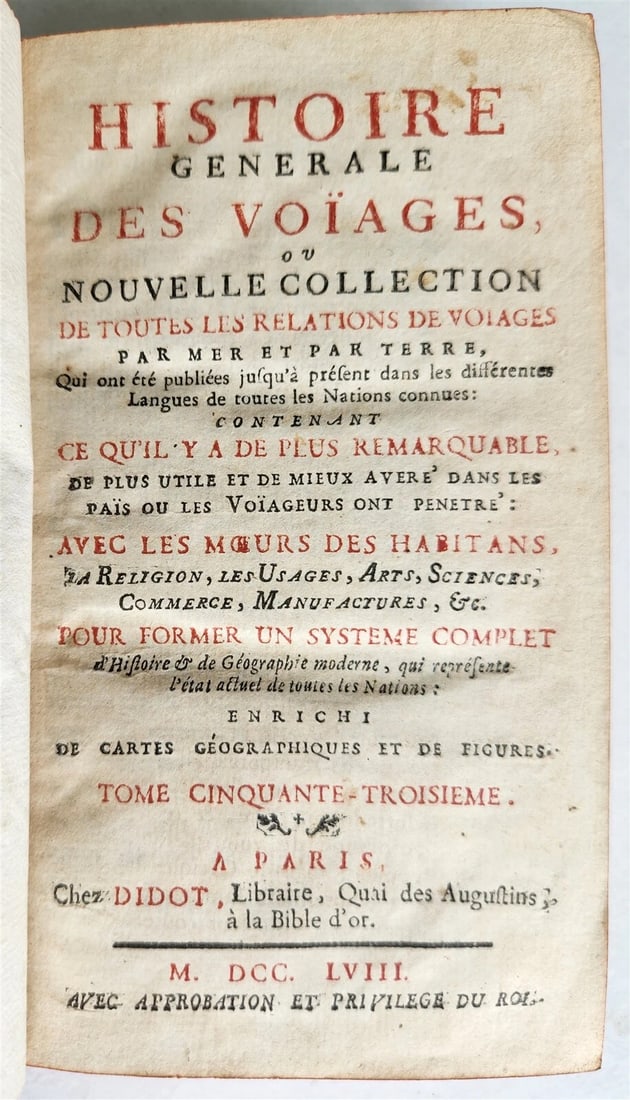 HISTOIRE
GENERALE
DES VOÏAGES,
OU
NOUVELLE COLLECTION
DE TOUTES LES RELATIONS DE VOIAGES
PAR MER ET PAR TERRE,
Qui ont été publiées juſqu'à préſent dans les différentes
Langues de toutes les Nations connues:
CONTENANT
CE QU'IL Y A DE PLUS REMARQUABLE,
DE PLUS UTILE ET DE MIEUX AVERE' DANS LES
PAÏS OU LES VOÏAGEURS ONT PENETRE':
AVEC LES MŒURS DES HABITANS,
LA RELIGION, LES USAGES, ARTS, SCIENCES,
COMMERCE, MANUFACTURES, &c.
POUR FORMER UN SYSTEME COMPLET
d'Hiſtoire & de Géographie moderne, qui repréſente
l'état actuel de toutes les Nations:
ENRICHI
DE CARTES GÉOGRAPHIQUES ET DE FIGURES.
TOME CINQUANTE-TROISIEME.
A PARIS,
Chez DIDOT, Libraire, Quai des Auguſtins,
à la Bible d'or.
M. DCC. LVIII.
AVEC APPROBATION ET PRIVILEGE DU ROI.